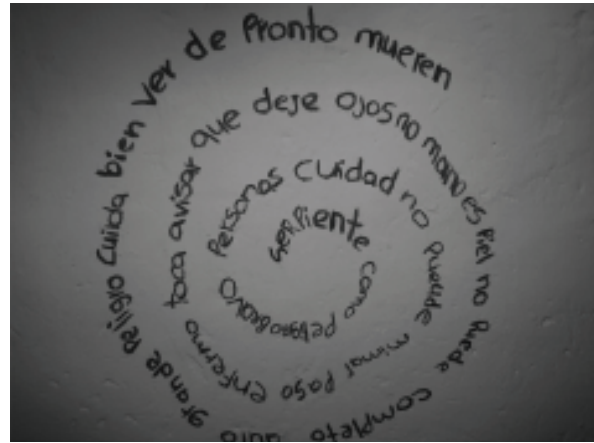 serpiente como peligro bravo personas cuidad no mimar paso enfermo toca avisar que deje ojos no mano es piel no puede completo grande peligro cuida bien ver de pronto mueren